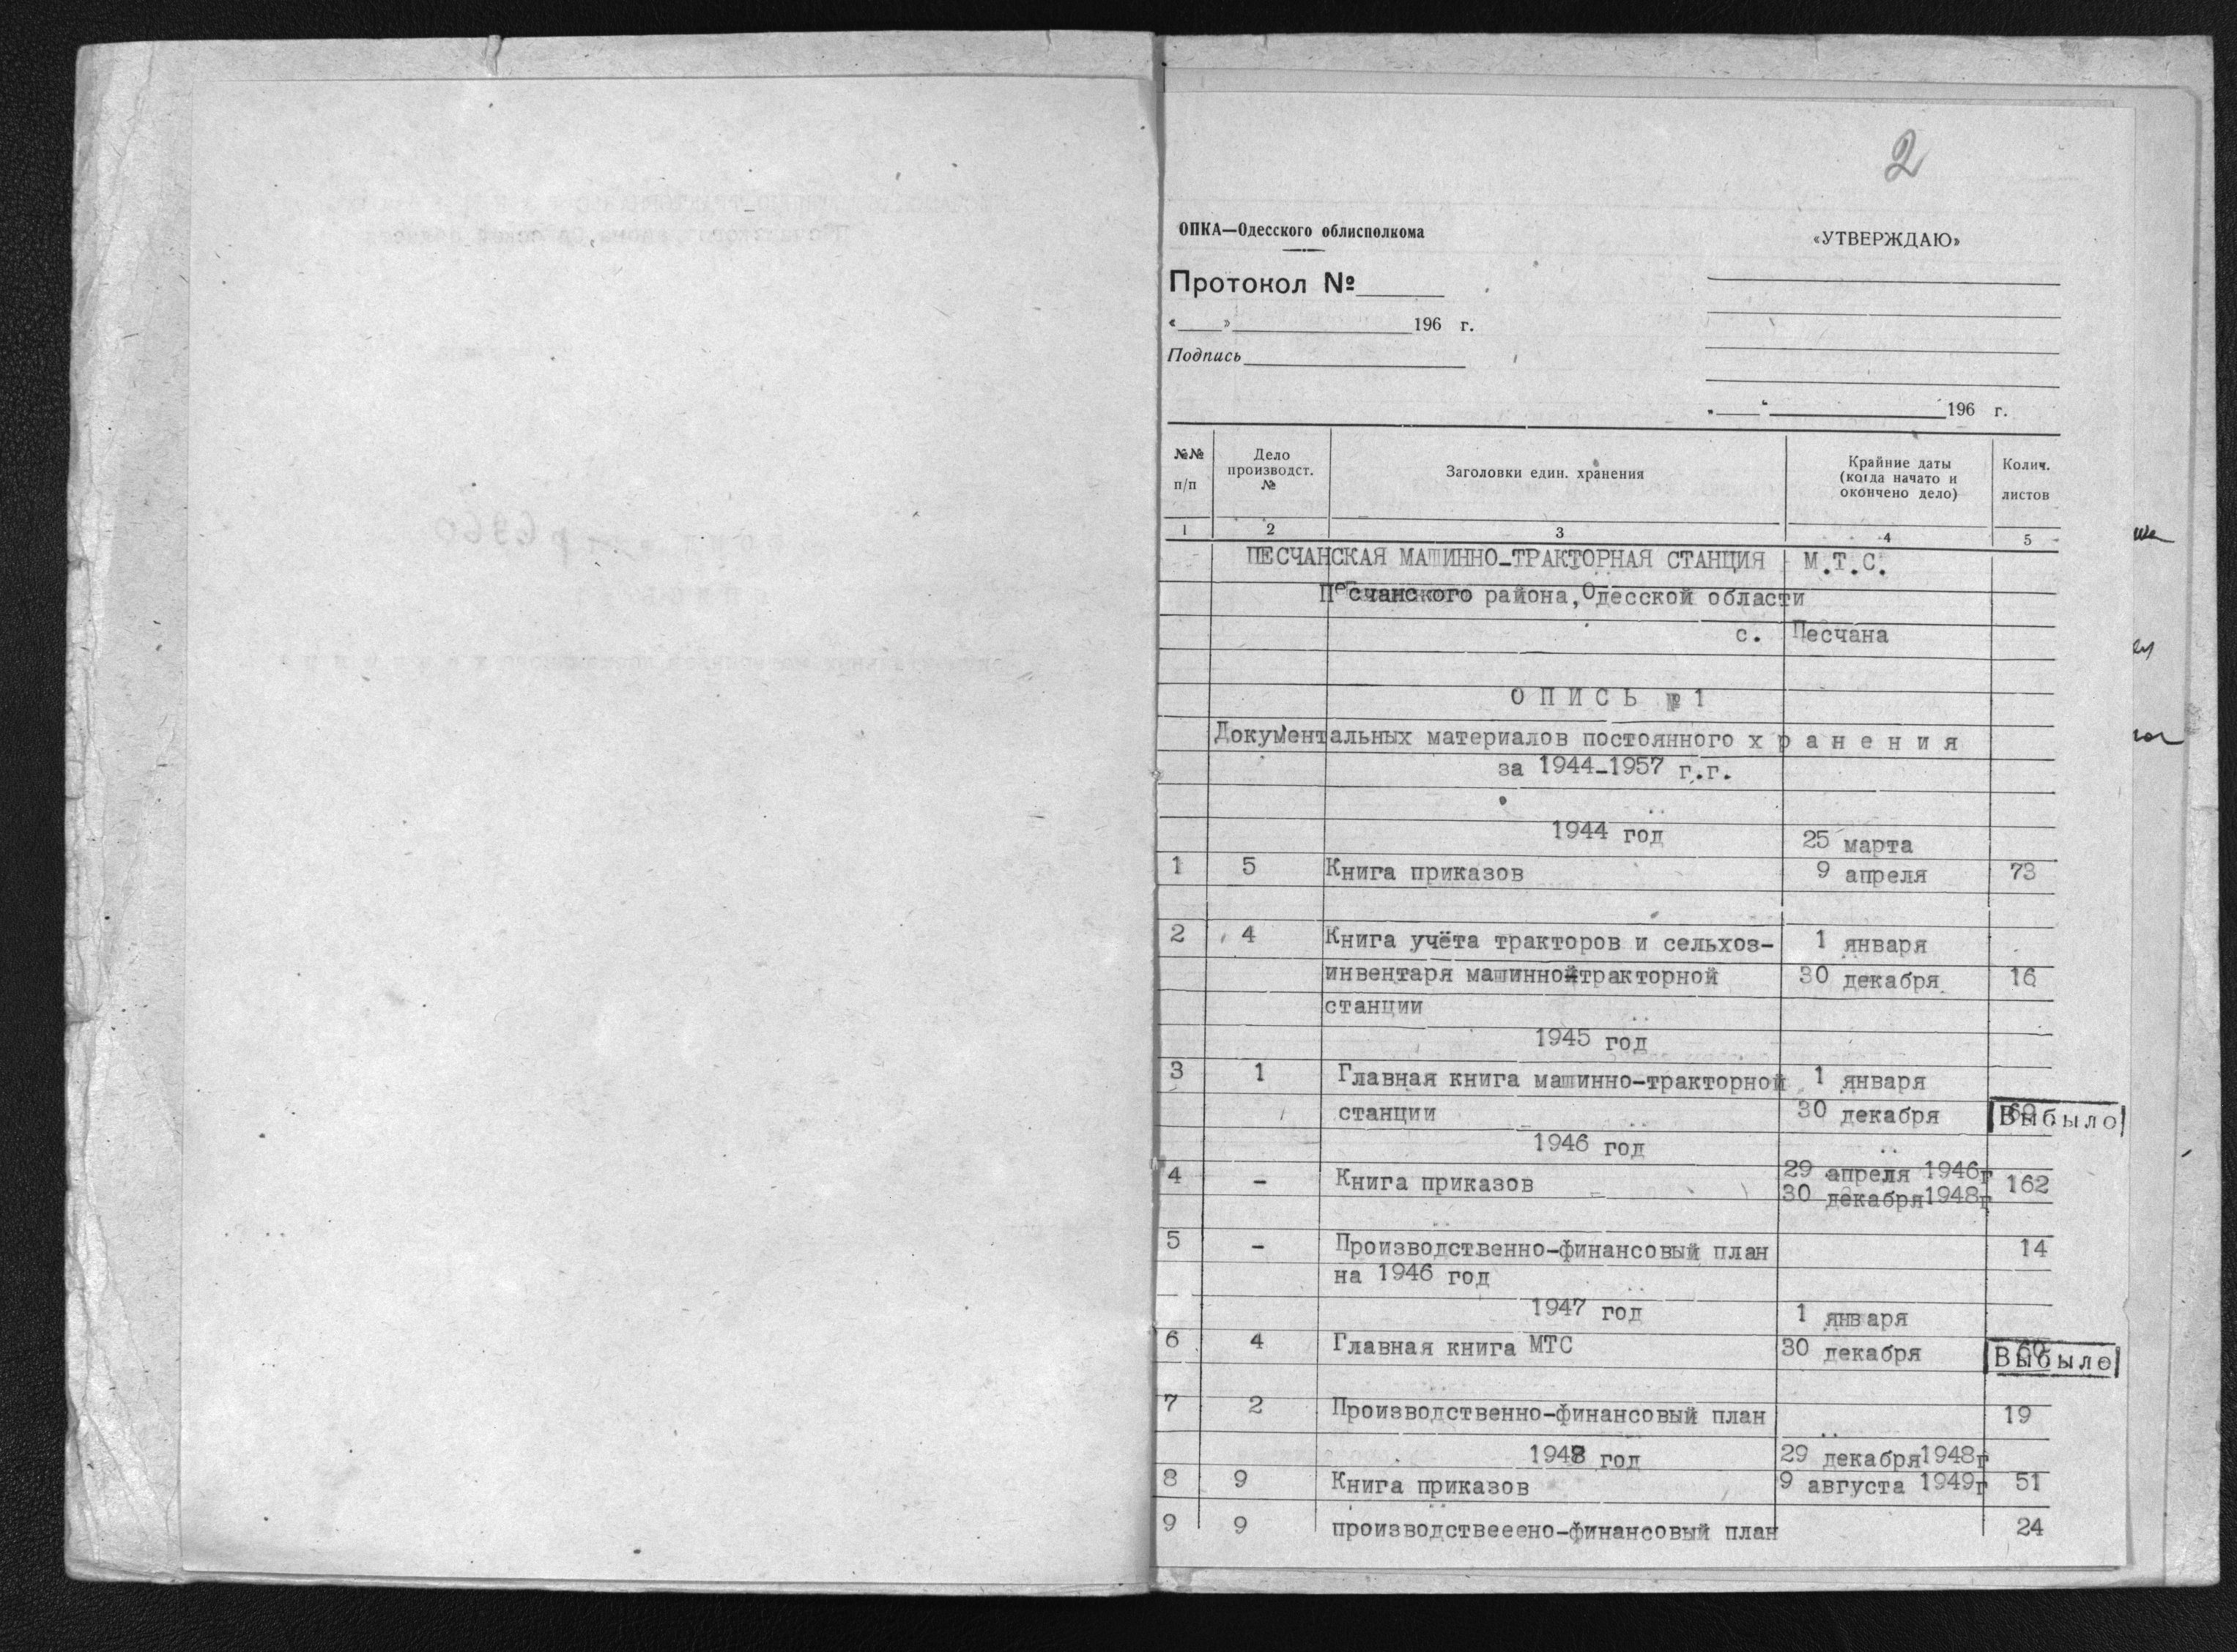 2
ОПКА—Одесского облисполкома
«УТВЕРЖДАЮ»
Протокол №
«    »                196  г.
Подпись
"    "                196  г.
№№ п/п | Дело производст. № | Заголовки един. хранения | Крайние даты (когда начато и окончено дело) | Колич. листов
1 | 2 | 3 | 4 | 5
ПЕСЧАНСКАЯ МАШИННО-ТРАКТОРНАЯ СТАНЦИЯ М.Т.С.
Песчанского района, Одесской области
с. Песчана
О П И С Ь № 1
Документальных материалов постоянного х р а н е н и я
за 1944-1957 г.г.
1944 год 25 марта
1 5 Книга приказов 9 апреля 73
2 4 Книга учёта тракторов и сельхоз- 1 января
инвентаря машиннойтракторной 30 декабря 16
станции
1945 год
3 1 Главная книга машинно-тракторной 1 января
станции 30 декабря Выбыло
1946 год
29 апреля 1946г
4 - Книга приказов 30 декабря1948г 162
5 - Производственно-финансовый план 14
на 1946 год
1947 год 1 января
6 4 Главная книга МТС 30 декабря 60 Выбыло
7 2 Производственно-финансовый план 19
1948 год 29 декабря1948г
8 9 Книга приказов 9 августа 1949г 51
9 9 производствееено-финансовый план 24